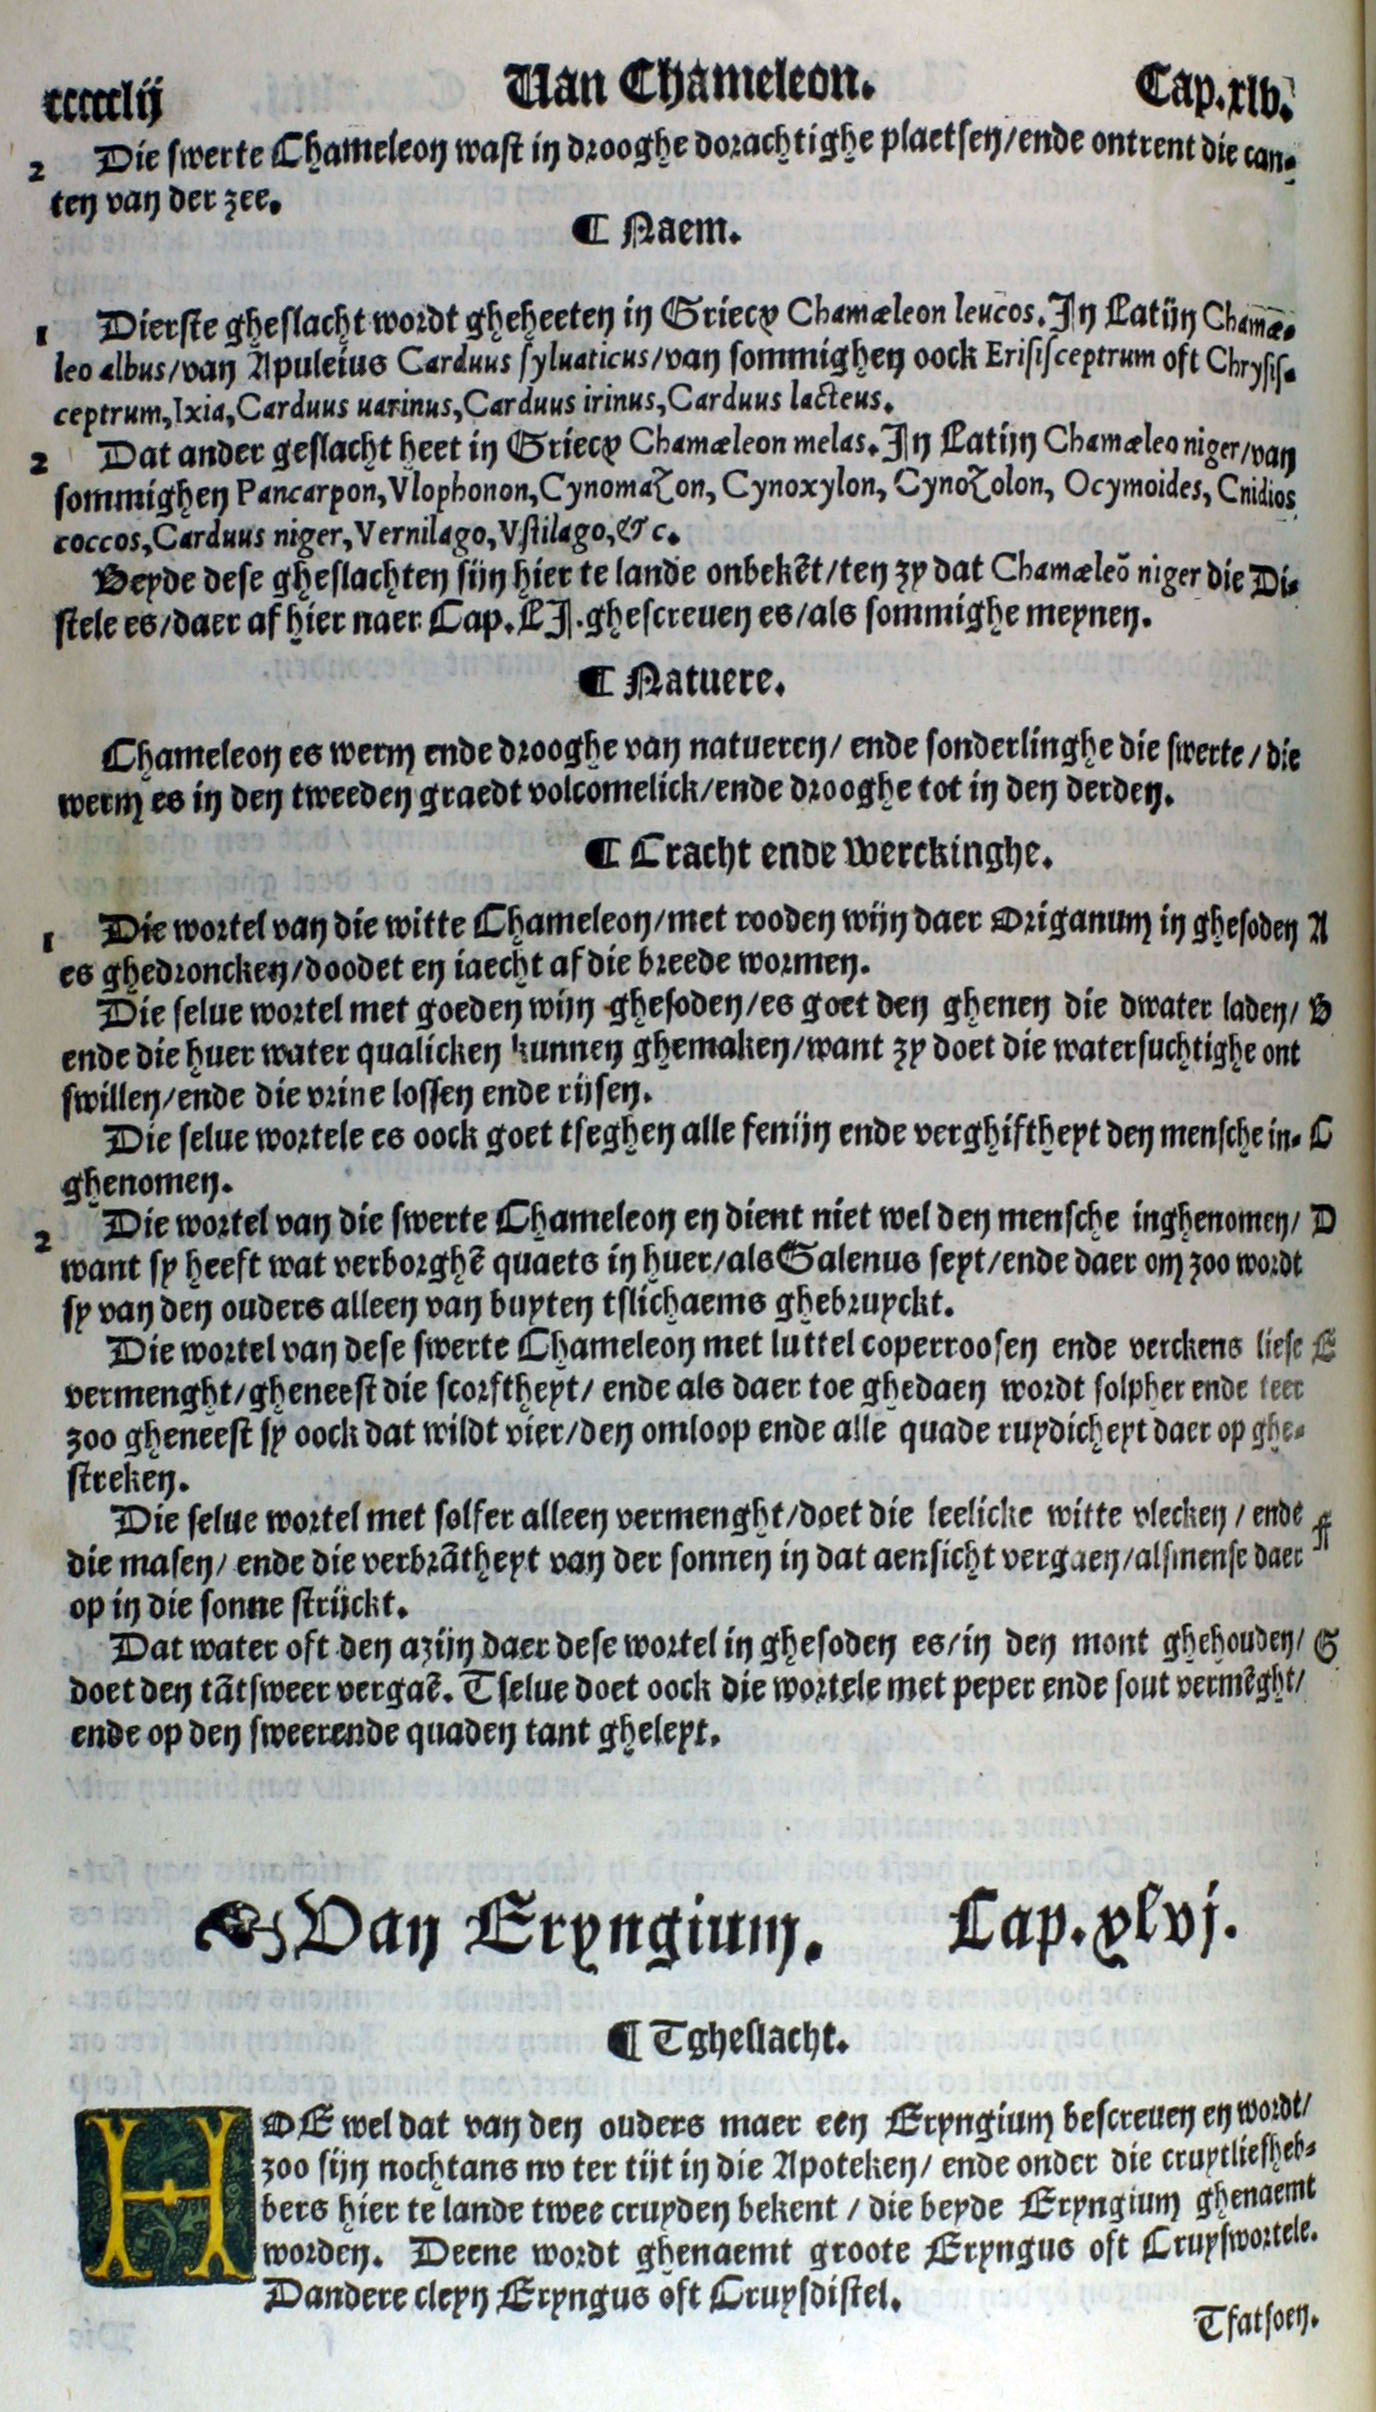 ccccclij Van Chameleon. Cap.xlv.
2 Die swerte Chameleon wast in drooghe dorachtighe plaetsen/ende ontrent die can-
ten van der zee.
¶ Naem.
1 Dierste gheslacht wordt gheheeten in Griecx Chamæleon leucos. In Latijn Chamæ-
leo albus/van Apuleius Carduus syluaticus/van sommighen oock Erisisceptrum oft Chrysis-
ceptrum, Ixia, Carduus uarinus, Carduus irinus, Carduus lacteus.
2 Dat ander geslacht heet in Griecx Chamæleon melas. In Latijn Chamæleo niger/van
sommighen Pancarpon, Vlophonon, Cynomazon, Cynoxylon, Cynozolon, Ocymoides, Cnidios
coccos, Carduus niger, Vernilago, Vstilago, &c.
Beyde dese gheslachten sijn hier te lande onbekēt/ten zy dat Chamæleō niger die Di-
stele es/daer af hier naer Cap. LI. ghescreuen es/als sommighe meynen.
¶ Natuere.
Chameleon es werm ende drooghe van natueren/ ende sonderlinghe die swerte/ die
werm es in den tweeden graedt volcomelick/ende drooghe tot in den derden.
¶ Cracht ende Werckinghe.
1 Die wortel van die witte Chameleon/met rooden wijn daer Origanum in ghesoden A
es ghedroncken/doodet en iaecht af die breede wormen.
Die selue wortel met goeden wijn ghesoden/es goet den ghenen die dwater laden/ B
ende die huer water qualicken kunnen ghemaken/want zy doet die watersuchtighe ont
swillen/ende die vrine lossen ende rijsen.
Die selue wortele es oock goet tseghen alle fenijn ende verghiftheyt den mensche in- C
ghenomen.
2 Die wortel van die swerte Chameleon en dient niet wel den mensche inghenomen/ D
want sy heeft wat verborghē quaets in huer/als Galenus seyt/ende daer om zoo wordt
sy van den ouders alleen van buyten tslichaems ghebruyckt.
Die wortel van dese swerte Chameleon met luttel coperroosen ende verckens liese E
vermenght/gheneest die scorftheyt/ ende als daer toe ghedaen wordt solpher ende teer
zoo gheneest sy oock dat wildt vier/den omloop ende alle quade ruydicheyt daer op ghe-
streken.
Die selue wortel met solfer alleen vermenght/doet die leelicke witte vlecken/ ende F
die masen/ ende die verbrātheyt van der sonnen in dat aensicht vergaen/alsmense daer
op in die sonne strijckt.
Dat water oft den azijn daer dese wortel in ghesoden es/in den mont ghehouden/ G
doet den tātsweer vergaē. Tselue doet oock die wortele met peper ende sout vermēght/
ende op den sweerende quaden tant gheleyt.
Van Eryngium. Cap.xlvj.
¶ Tgheslacht.
HOE wel dat van den ouders maer een Eryngium bescreuen en wordt/
zoo sijn nochtans nv ter tijt in die Apoteken/ ende onder die cruytliefheb-
bers hier te lande twee cruyden bekent/ die beyde Eryngium ghenaemt
worden. Deene wordt ghenaemt groote Eryngus oft Cruyswortele.
Dandere cleyn Eryngus oft Cruysdistel.
Tfatsoen.